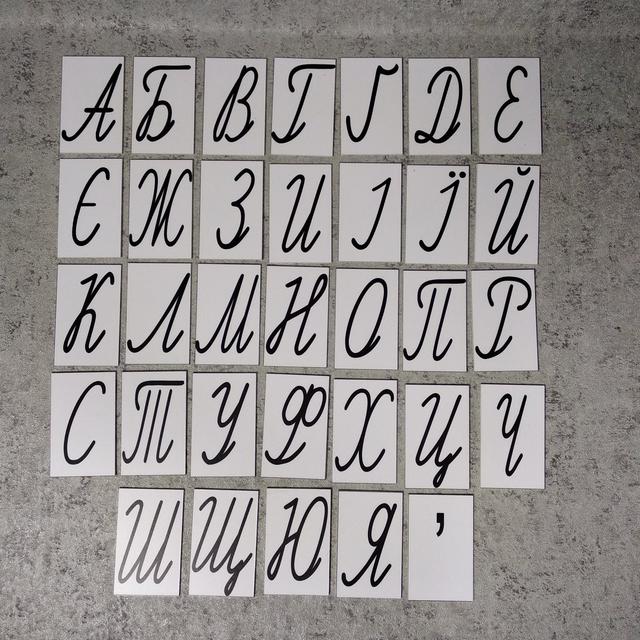 А Б В Г Ґ Д Е
Є Ж З И І Ї Й
К Л М Н О П Р
С Т У Ф Х Ц Ч
Ш Щ Ю Я ʼ